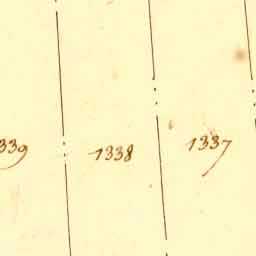 339 1338 1337